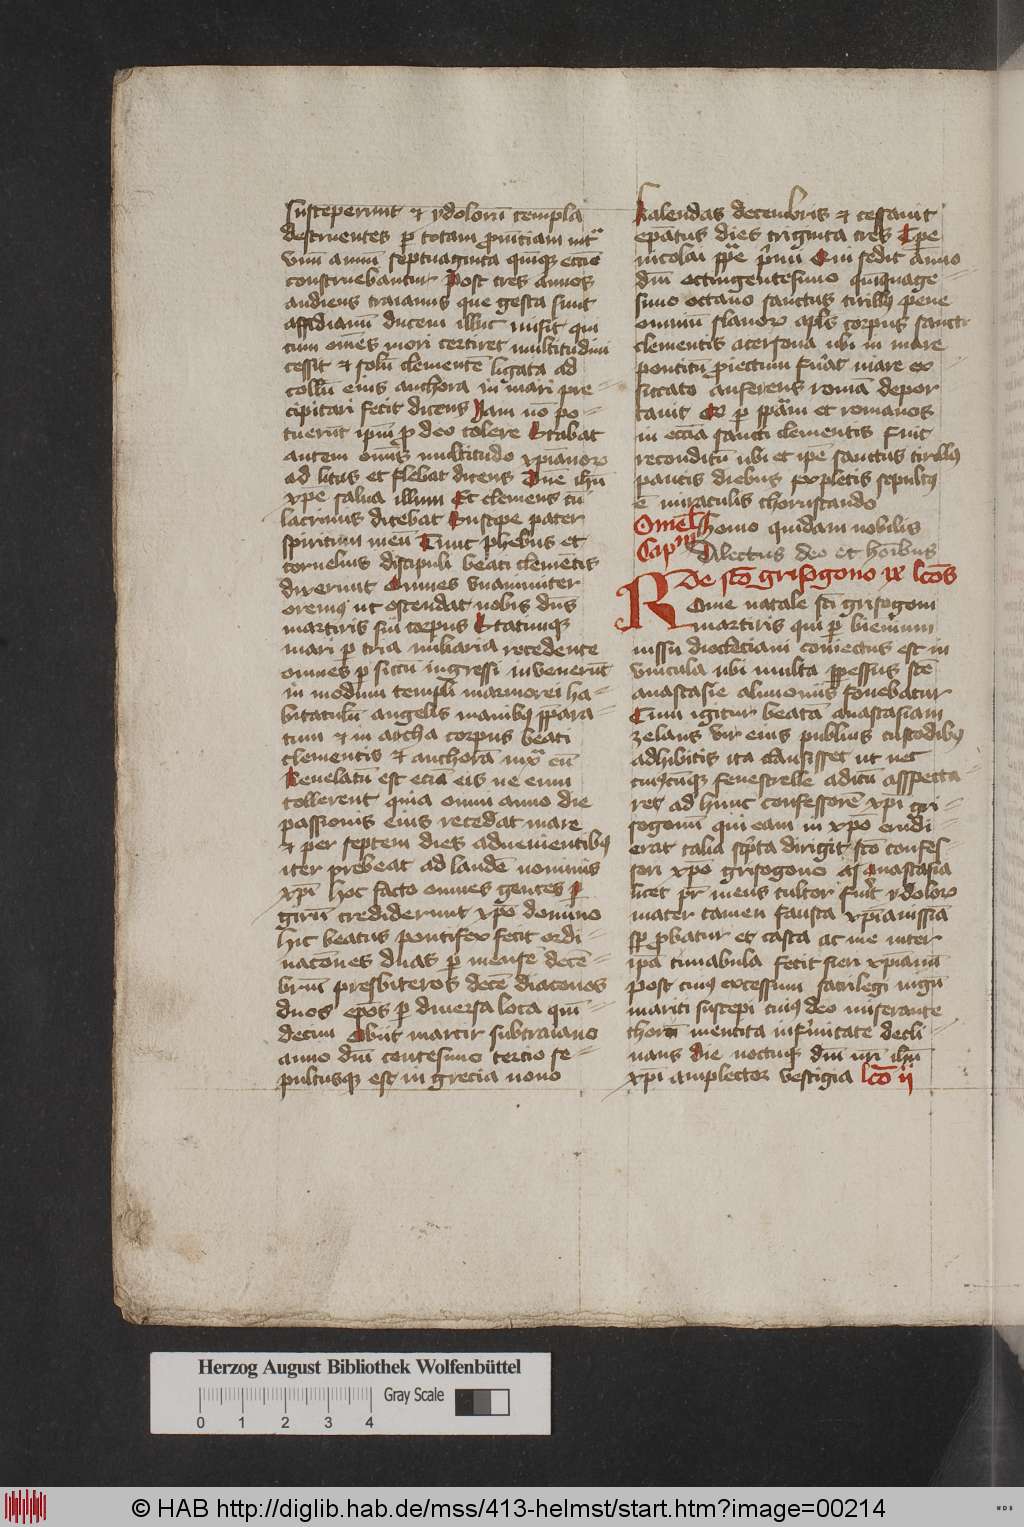 susceperunt et ydolorū templa
destruentes ꝑ totam ꝓuīciam int͛
vnū annū septuaginta quīqꝫ eccīe
construebantur Post tres annos
audiens traianus que gesta sunt
affidianū ducem illuc misit qui
cum om̄es mori certiret multitudini
cessit et solū clementē ligata ad
collū eius anchora in mari pre-
cipitari fecit dicens Nam nō po-
tuerūt ip̄m ꝓ deo colere Stabat
autem omīs multitudo xp̄ianoꝝ
ad litus et flebat dicens Dn̄e ih̄u
xp̄e salua illum Et clemens cū
lacrimis dicebat Suscipe pater
spiritum meū Tunc phebus et
cornelius discipuli beati clemētis
dixerunt Omnes vnanimiter
oremꝰ ut ostendat nobis dn̄s
martiris sui corpus Statimqꝫ
mari ꝑ tria miliaria recedente
omnes ꝑ siccū ingressi inuenerūt
in modum templi marmorei ha-
bitaculū angelis manibꝰ p̄para-
tum et in archa corpus beati
clementis et anchorā iuxͣ eū
Reuelatū est eciā eis ne eum
tollerent quia omni anno die
passionis eius recedat mare
et per septem dies aduenientibꝰ
iter prebeat ad laudē nominis
xp̄i hoc facto omnes gentes ꝑ
girū crediderunt xp̄o domino
Hic beatus pontifex fecit ordi-
nacōnes duas ꝑ mense decē-
brim presbiteros decē diaconos
duos ep̄os ꝑ diuersa loca quī-
decim Obijt martir sub traiano
anno dn̄i centesimo tercio se-
pultusqꝫ est in grecia nono
kalendas decembris et cessauit
epatus dies triginta tres Tp̄e
nicolai pp̄e p̄mi Qui sedit anno
dn̄i octingentesimo quīquage-
simo octauo sanctus cirillꝰ pene
omniū slauoꝝ apl̄s corpus sancti
clementis acersona ubi in mare
ponticū ꝓiectum fuͣat mare ex
siccato auferens romā depor
tauit Et ꝑ pp̄am et romanos
in eccīa sancti clementis fuit
reconditū ubi et ip̄e sanctus cirillꝰ
paucis diebus expletis sepultꝰ
ē miraculis choruscando
Omel᷒ Homo quidam nobilis
Capᵐ Dilectus deo et hoībus
De sc̄o grisogono ix lcōs
Rome natale sc̄i grisogoni
martiris qui ꝑ bienium
iussu dioclēciani coniectus est in
vincula ubi multa ꝑpessus sc̄e
anastasie alimoniis fouebatur
Cum igitur beatā anastasiam
zelans vir eius publius custodibꝰ
adhibitis ita clausisset ut nec
cuiꝰcūqꝫ fenestrelle aditū asspecta-
res ad hunc confessorē xp̄i gri-
sogonū qui eam in xp̄o erudi-
erat talia sc̄pta dirigit sc̄o confes-
sori xp̄o grisogono Anastasia
licet pr̄ meus cultor fuͣit ydoloꝝ
mater tamen fausta xp̄ianissīa
sp̄ ꝓbatur et casta ac me inter
ip̄a cunabula fecit fieri xp̄ianā
post cuiꝰ excessum sacrilegi iugū
mariti suscepi cuiꝰ deo miserante
thorū mentita infirmitate decli-
naus die noctuqꝫ dn̄i nr̄i ih̄u
xp̄i amplector vestigia lcō ij
Herzog August Bibliothek Wolfenbüttel
Gray Scale
0 1 2 3 4
© HAB http://diglib.hab.de/mss/413-helmst/start.htm?image=00214